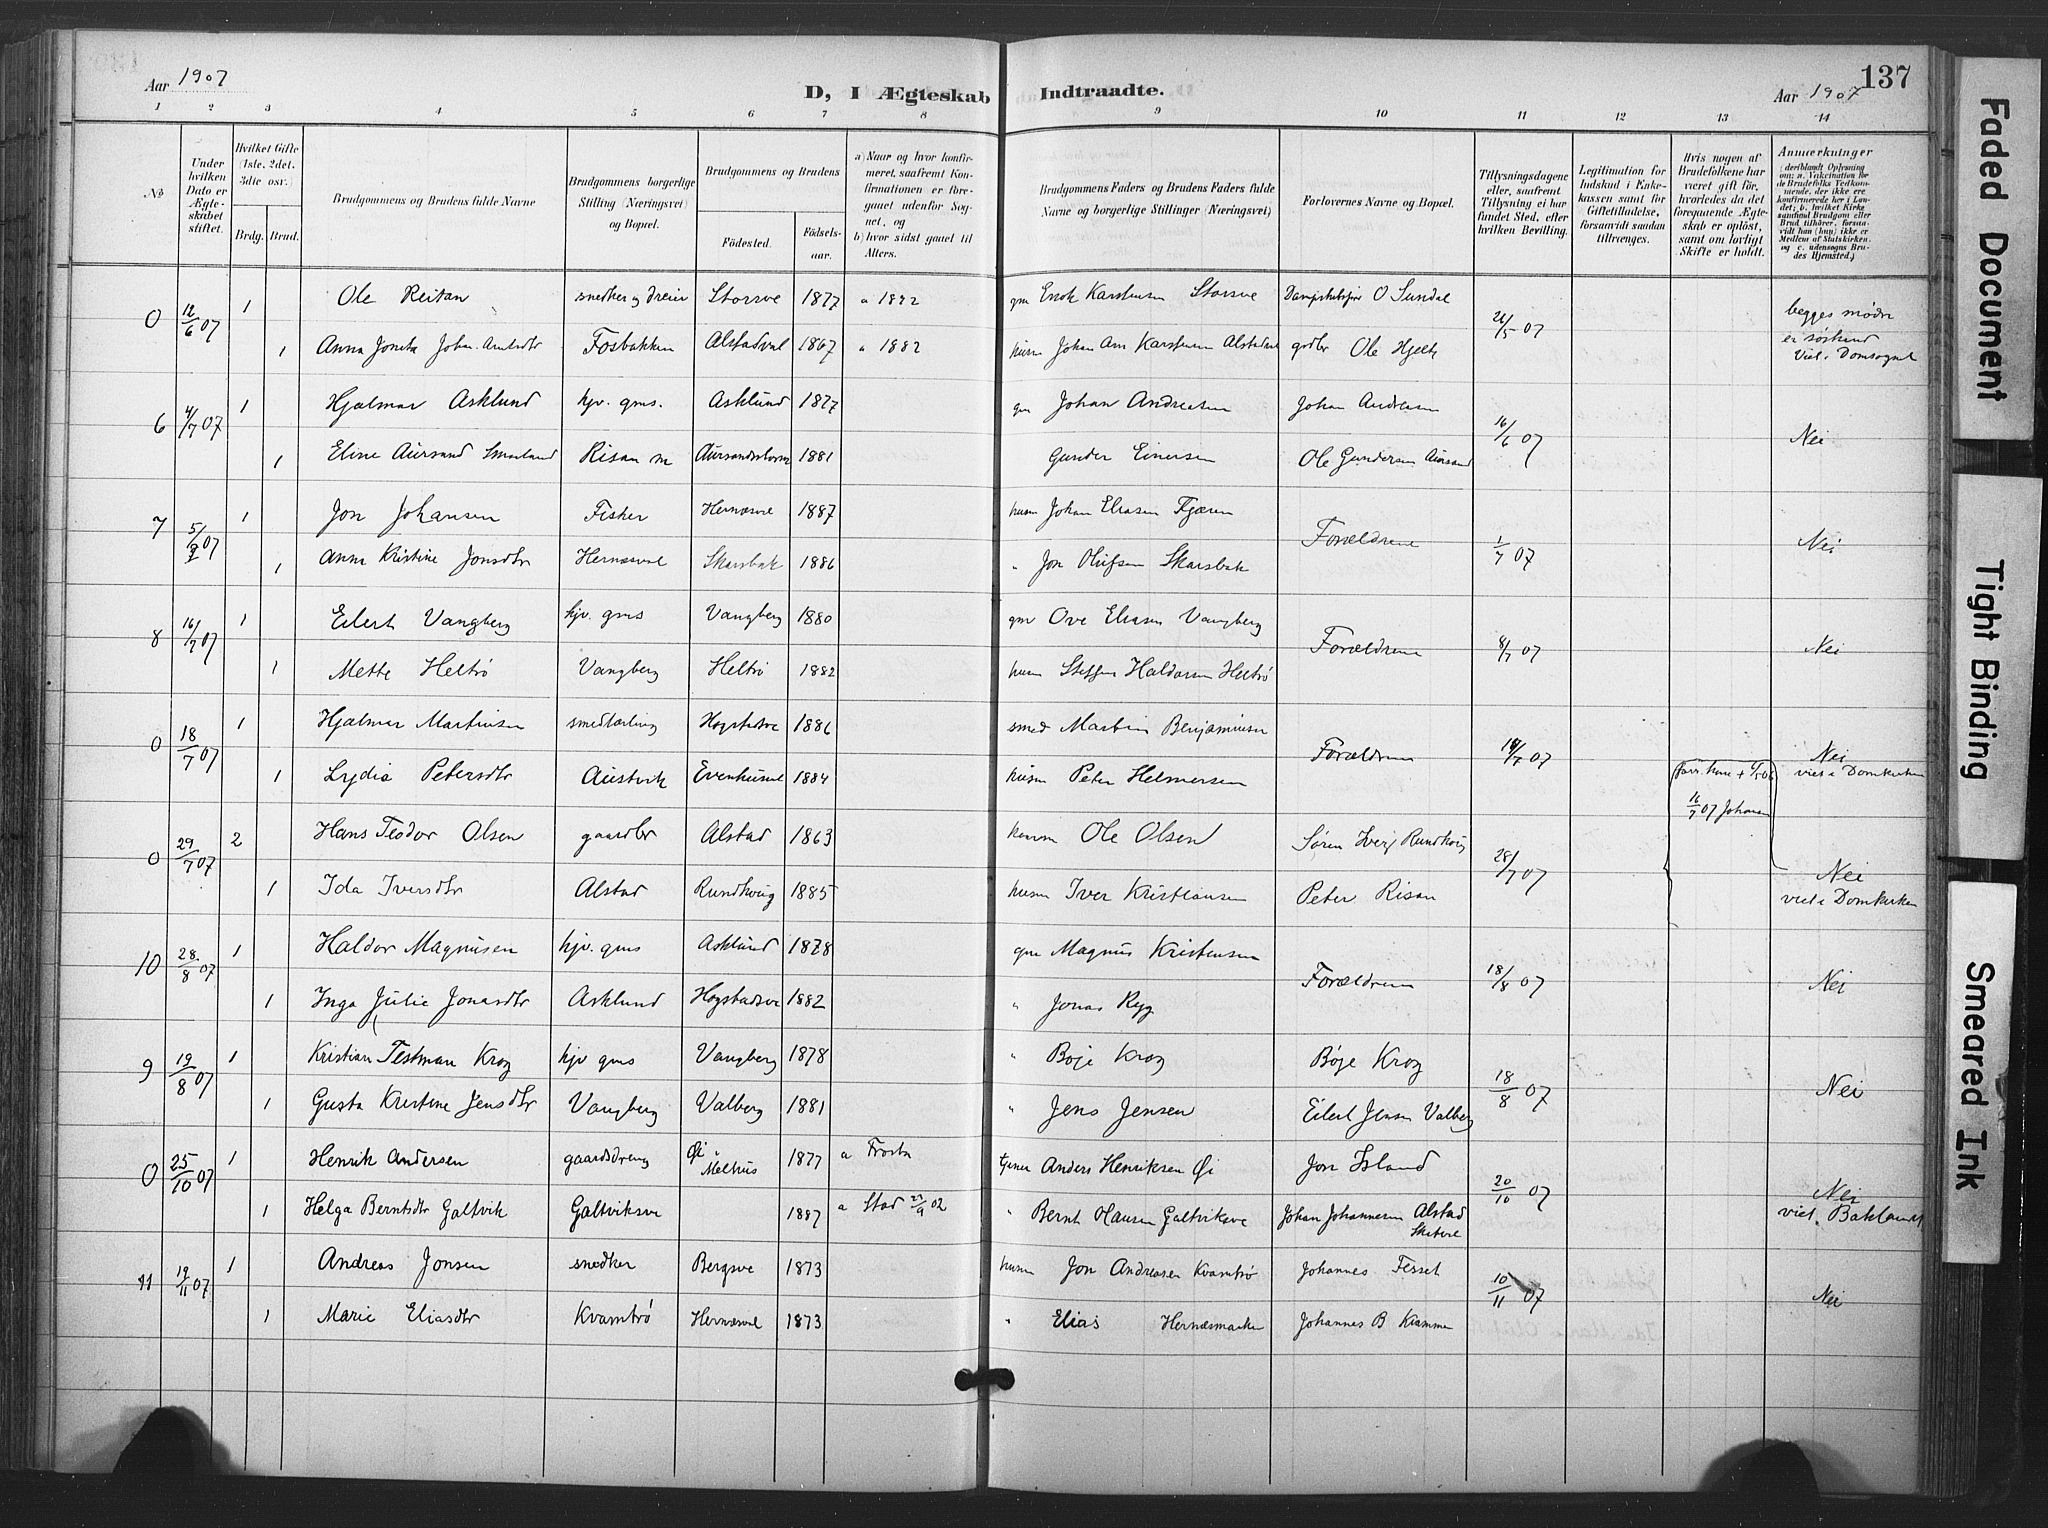 Aar 1907
D, I Ægteskab Indtraadte.
Aar 1907
137
1 2 3 4 5 6 7 8 9 10 11 12 13 14
No
Under hvilken Dato er Ægteskabet stiftet.
Hvilket Gifte (1ste, 2det, 3die osv.)
Brdg. Brud.
Brudgommens og Brudens fulde Navne
Brudgommens borgerlige Stilling (Næringsvei) og Bopæl.
Brudgommens og Brudens
Fødested.
Fødselsaar.
a) Naar og hvor konfirmeret, saafremt Konfirmationen er foregaaet udenfor Sognet, og
b) hvor sidst gaaet til Alters.
Brudgommens Faders og Brudens Faders fulde Navne og borgerlige Stillinger (Næringsvei)
Forlovernes Navne og Bopæl.
Tillysningsdagene eller, saafremt Tillysning ei har fundet Sted, efter hvilken Bevilling.
Legitimation for Indskud i Enkekassen samt for Giftetilladelse, forsaavidt saadan tiltrænges.
Hvis nogen af Brudefolkene har været gift før, hvorledes da det foregaaende Ægteskab er opløst, samt om lovligt Skifte er holdt.
Anmærkninger (deriblandt Oplysning om: a. Vakcination for de Brudefolks Vedkommende, der ikke ere konfirmerede her i Landet; b. hvilket Kirkesamfund Brudgom eller Brud tilhører, forsaavidt han (hun) ikke er Medlem af Statskirken, og c. udensogns Brudes Hjemsted.)
0 12/6 07 1 Ole Reitan snedker og dreier Storsve 1877 a 1892 gm Enok Karstensen Storsve O Sundal 26/5 07 begges mødre
1 Anna Fosbakken Alstadval 1867 a 1882 husm Johan Arn Karstensen grdbr Ole Hjelte er søskend
Viet i Domsognet
6 4/7 07 1 Hjalmar Asklund hjv. gms. Asklund 1877 gm Johan Andreasen Johan Andreasen 16/6 07 Nei
1 Eline Aursand Risan 1881 Gunder Einersen Ole Gundersen Aursand
7 5/7 07 1 Jon Johansen Fisker Hernæsve 1887 husm Johan Eliasen Fjæren Forældrene 1/7 07 Nei
1 Anna Kristine Jonsdtr Hernæsval Skarsbak 1886 " Jon Olufsen Skarsbak
8 16/7 07 1 Eilert Vangberg hjv. gms Vangberg 1880 gm Ove Eliasen Vangberg Forældrene 8/7 07 Nei
1 Mette Heltrø Vangberg Heltrø 1882 husm Steffen Haldorsen Heltrø
0 18/7 07 1 Hjalmar Martinsen smedlærling Hogstadve 1886 smed Martin Benjaminsen Forældrene /7 07 Nei
1 Lydia Petersdtr Austvik Evenhusval 1884 husm Peter Helmersen viet i Domkirken
0 29/7 07 2 Hans Teodor Olsen gaardbr Alstad 1863 Ole Olsen Søren Rundhaug 28/7 07 16/7 07 Johansen
1 Ida Iversdtr Alstad Rundhaug 1885 husm Iver Kristiansen Peter Risan Nei
viet i Domkirken
10 28/8 07 1 Haldor Magnusen hjv. gms Asklund 1878 gm Magnus Kristensen Forældrene 18/8 07 Nei
1 Inga Julie Jonasdtr Asklund Hogstadsve 1882 " Jonas Ryg
9 19/8 07 1 Kristian Testman Krog hjv gms Vangberg 1878 " Bøje Krog Bøje Krog 18/8 07 Nei
1 Gusta Kristine Jensdtr Vangberg Valberg 1881 " Jens Jensen Eilert Jensen Valberg
0 25/10 07 1 Henrik Andersen gaardsdreng Øi i Melhus 1877 a Frosta tjener Anders Henriksen Øi Jon Island 20/10 07 Nei
1 Helga Berntsdtr Galtvik Galtviksve 1887 a Stad 21/9 02 " Bernt Hansen Galtviksve Johan Johannesen Alstad viet i Baklandet
11 19/11 07 1 Andreas Jonsen snedker Bergsve 1873 husm Jon Andreasen Kvamtrø Johannes Fisset 10/11 07 Nei
1 Marie Eliasdtr Kvamtrø Hernæsval 1873 " Elias Hernæsmarken Johannes B Kvamme
Faded Document
Tight Binding
Smeared Ink